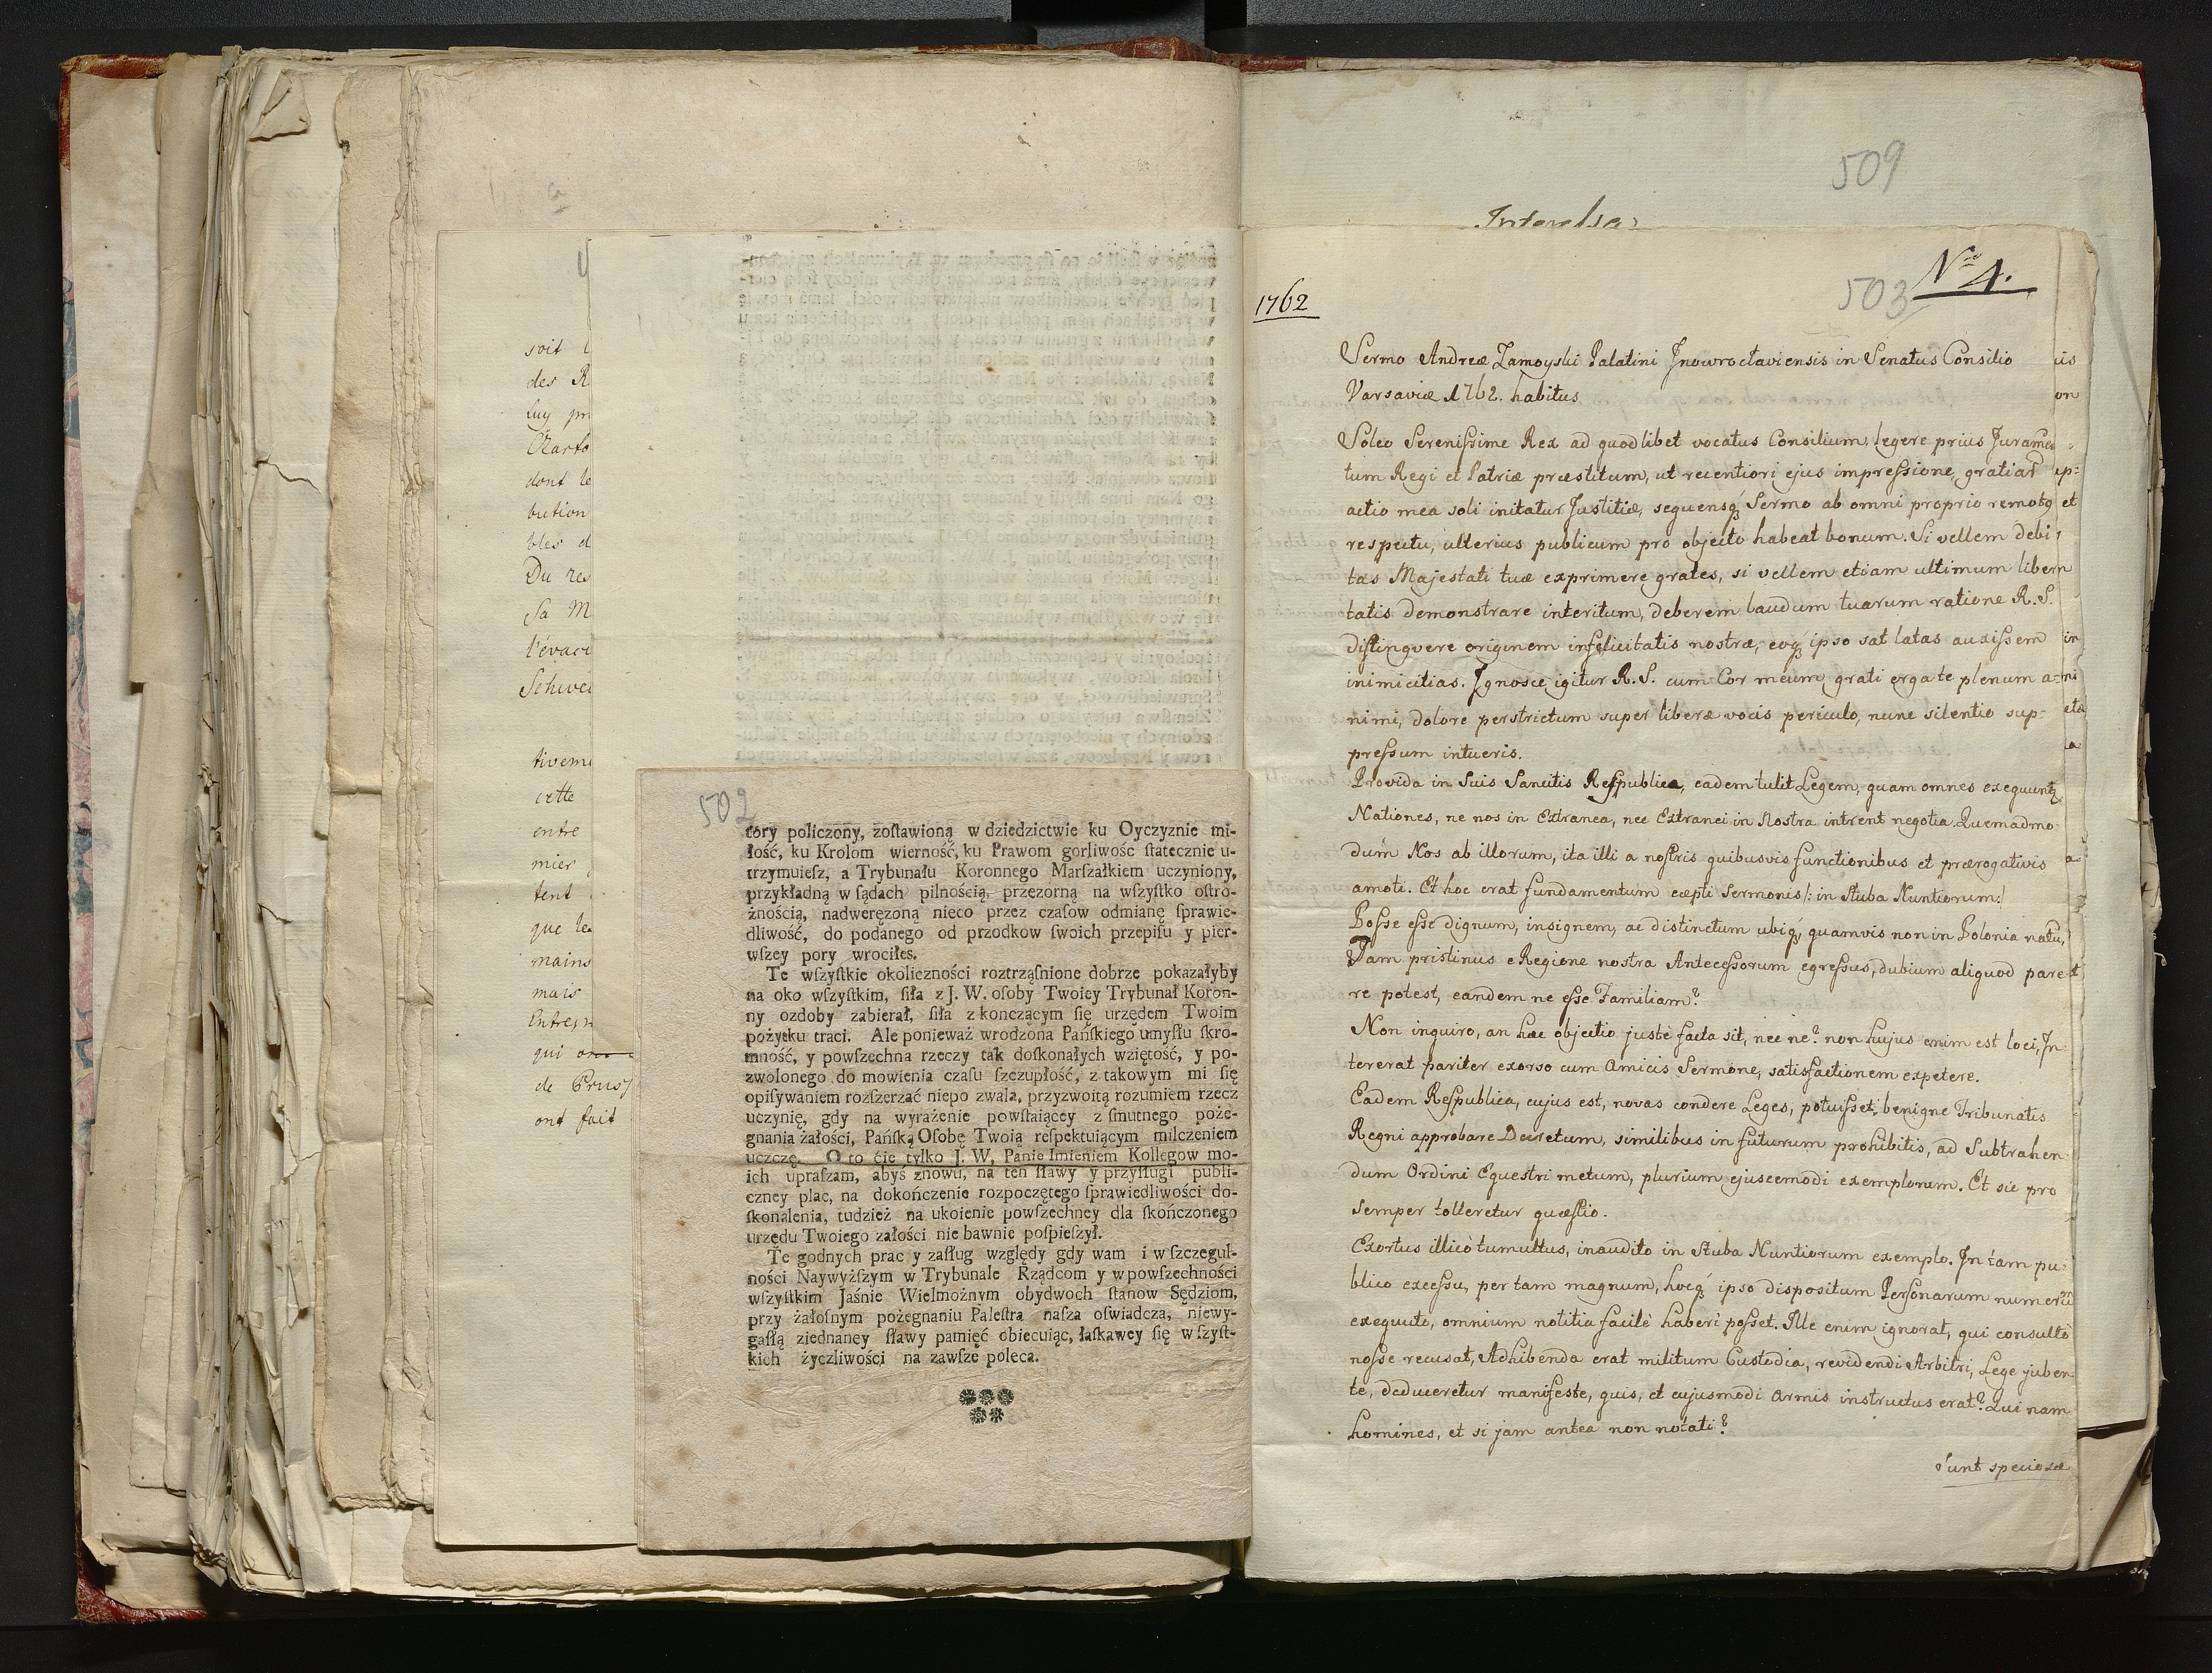 soit
des R
luy pr
Czarto
dont le
bution
bles d
Du res
Sa M
l'évacu
Schwei
tiveme
cette
entre
mier
tent
que le
mains
mais
Entre
qui on
de Pruss
ont fait
502
tory policzony, zoſtawioną w dziedzictwie ku Oyczyznie mi-
łość, ku Krolom wierność, ku Prawom gorliwośc ſtatecznie u-
trzymuieſz, a Trybunału Koronnego Marſzałkiem uczyniony,
przykładną w ſądach pilnością, przezorną na wſzyſtko oſtro-
żnością, nadweręzoną nieco przez czaſow odmianę ſprawie-
dliwość, do podanego od przodkow ſwoich przepiſu y pier-
wſzey pory wrociłes.
Te wſzyſtkie okoliczności roztrząſnione dobrze pokazałyby
na oko wſzyſtkim, ſiła z J. W. oſoby Twoiey Trybunał Koron-
ny ozdoby zabierał, ſiła z konczącym ſię urzędem Twoim
pożytku traci. Ale ponieważ wrodzona Pańſkiego umyſłu ſkro-
mność, y powſzechna rzeczy tak doſkonałych wziętość, y po-
zwolonego do mowienia czaſu ſzczupłość, z takowym mi ſię
opiſywaniem rozſzerzać niepo zwala, przyzwoitą rozumiem rzecz
uczynię, gdy na wyrażenie powſtaiącey z ſmutnego poże-
gnania żałości, Pańſką Oſobę Twoią reſpektuiącym milczeniem
uczczę. O to ćie tylko J. W, Panie Imieniem Kollegow mo-
ich upraſzam, abyś znowu, na ten ſławy y przyſługi publi-
czney plac, na dokończenie rozpoczętego ſprawiedliwości do-
ſkonalenia, tudzież na ukoienie powſzechney dla ſkończonego
urzędu Twoiego załości nie bawnie poſpieſzył.
Te godnych prac y zaſług względy gdy wam i w ſzczegul-
ności Naywyżſzym w Trybunale Rządcom y w powſzechności
wſzyſtkim Jaśnie Wielmożnym obydwoch ſtanow Sędziom,
przy żałoſnym pożegnaniu Paleſtra naſza oſwiadcza, niewy-
gaſłą ziednaney ſławy pamięć obiecuiąc, łaſkawey ſię wſzyſt-
kich życzliwości na zawſze poleca.
509
Interesa
503 No 4.
1762
Sermo Andreæ Zamoyski Palatini Jnowrocłaviensis in Senatus Consilio
Varsaviæ 1762. habitus
Soleo Serenissime Rex ad quodlibet vocatus Consilium, legere prius Juramen
tum Regi et Patriæ præstitum, ut recentiori ejus impressione, gratiar
actio mea soli initatur Justitiæ, sequensq; Sermo ab omni proprio remoto
respectu, ulterius publicum pro objecto habeat bonum. Si vellem debi
tas Majestati tuæ exprimere grates, si vellem etiam ultimum liber
tatis demonstrare interitum, deberem laudum tuarum ratione R. S.
distingvere originem infelicitatis nostræ, eoq; ipso sat latas auxissem
inimicitias. Jgnosce igitur R. S. cum Cor meum grati erga te plenum a=
nimi, dolore perstrictum super liberæ vocis periculo, nunc silentio sup=
pressum intueris.
Provida in Suis Sancitis Respublica, eadem tulit Legem, quam omnes exequunt
Nationes, ne nos in Extranea, nec Extranei in Nostra intrent negotia. Quemadmo
dum Nos ab illorum, ita illi a nostris quibusvis functionibus et prærogativis
amoti. Et hoc erat fundamentum cæpti Sermonis /: in Stuba Nuntiorum:/
Posse esse dignum, insignem, ac distinctum ubiq;, quamvis non in Polonia natu,
Jam pristinus e Regione nostra Antecessorum egressus, dubium aliquod pare
re potest, eandem ne esse Familiam?
Non inquiro, an hæc objectio juste facta sit, nec ne? non hujus enim est loci, Jn
tererat pariter exorso cum Amicis Sermone, satisfactionem expetere.
Eadem Respublica, cujus est, novas condere Leges, potuisset, benigne Tribunatis
Regni approbare Decretum, similibus in futurum prohibitis, ad Subtrahen
dum Ordini Equestri metum, plurium ejuscemodi exemplorum. Et sic pro
semper tolleretur quæstio.
Exortus illicò tumultus, inaudito in Stuba Nuntiorum exemplo. Jn tam pu=
blico excessu, per tam magnum, hocq; ipso dispositum Personarum numerũ
exequuto, omnium notitia facilè haberi posset. Jlle enim ignorat, qui consultò
nosse recusat, Adhibenda erat militum Custodia, revidendi Arbitri, Lege juben
te, deduceretur manifeste, quis, et cujusmodi Armis instructus erat? Qui nam
homines, et si jam antea non notati?
Sunt speciosæ